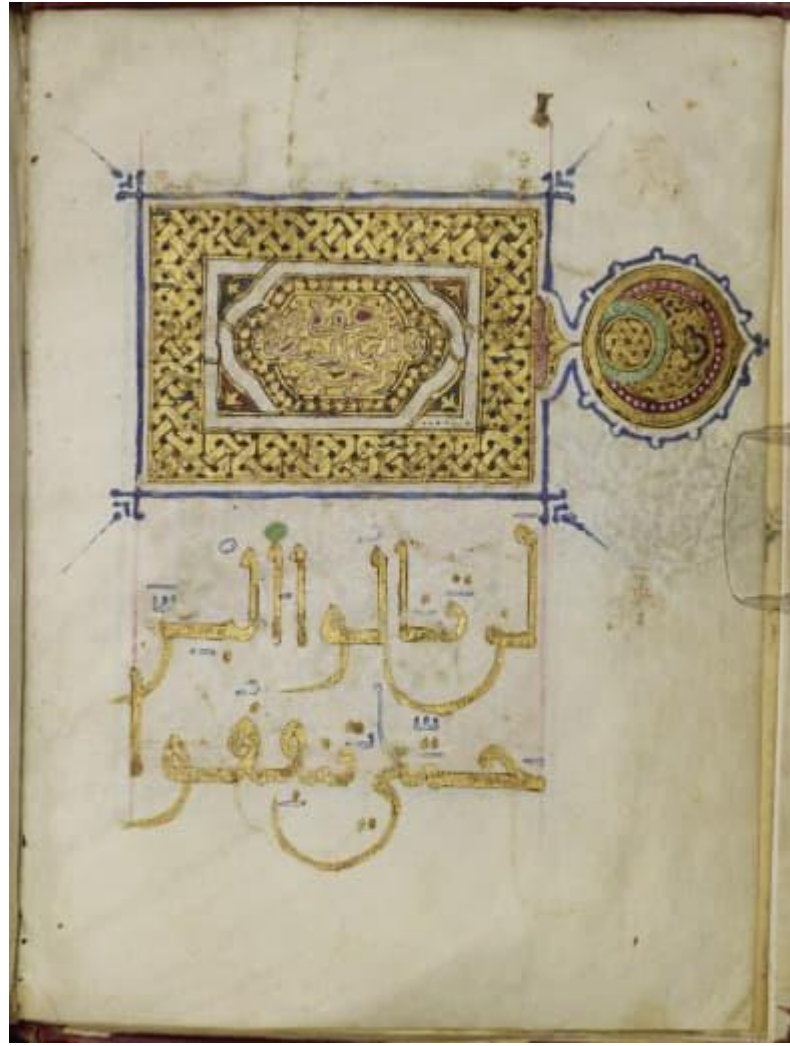 لَن تَنَالُوا۟ ٱلْبِرَّ
حَتَّىٰ تُنفِقُوا۟